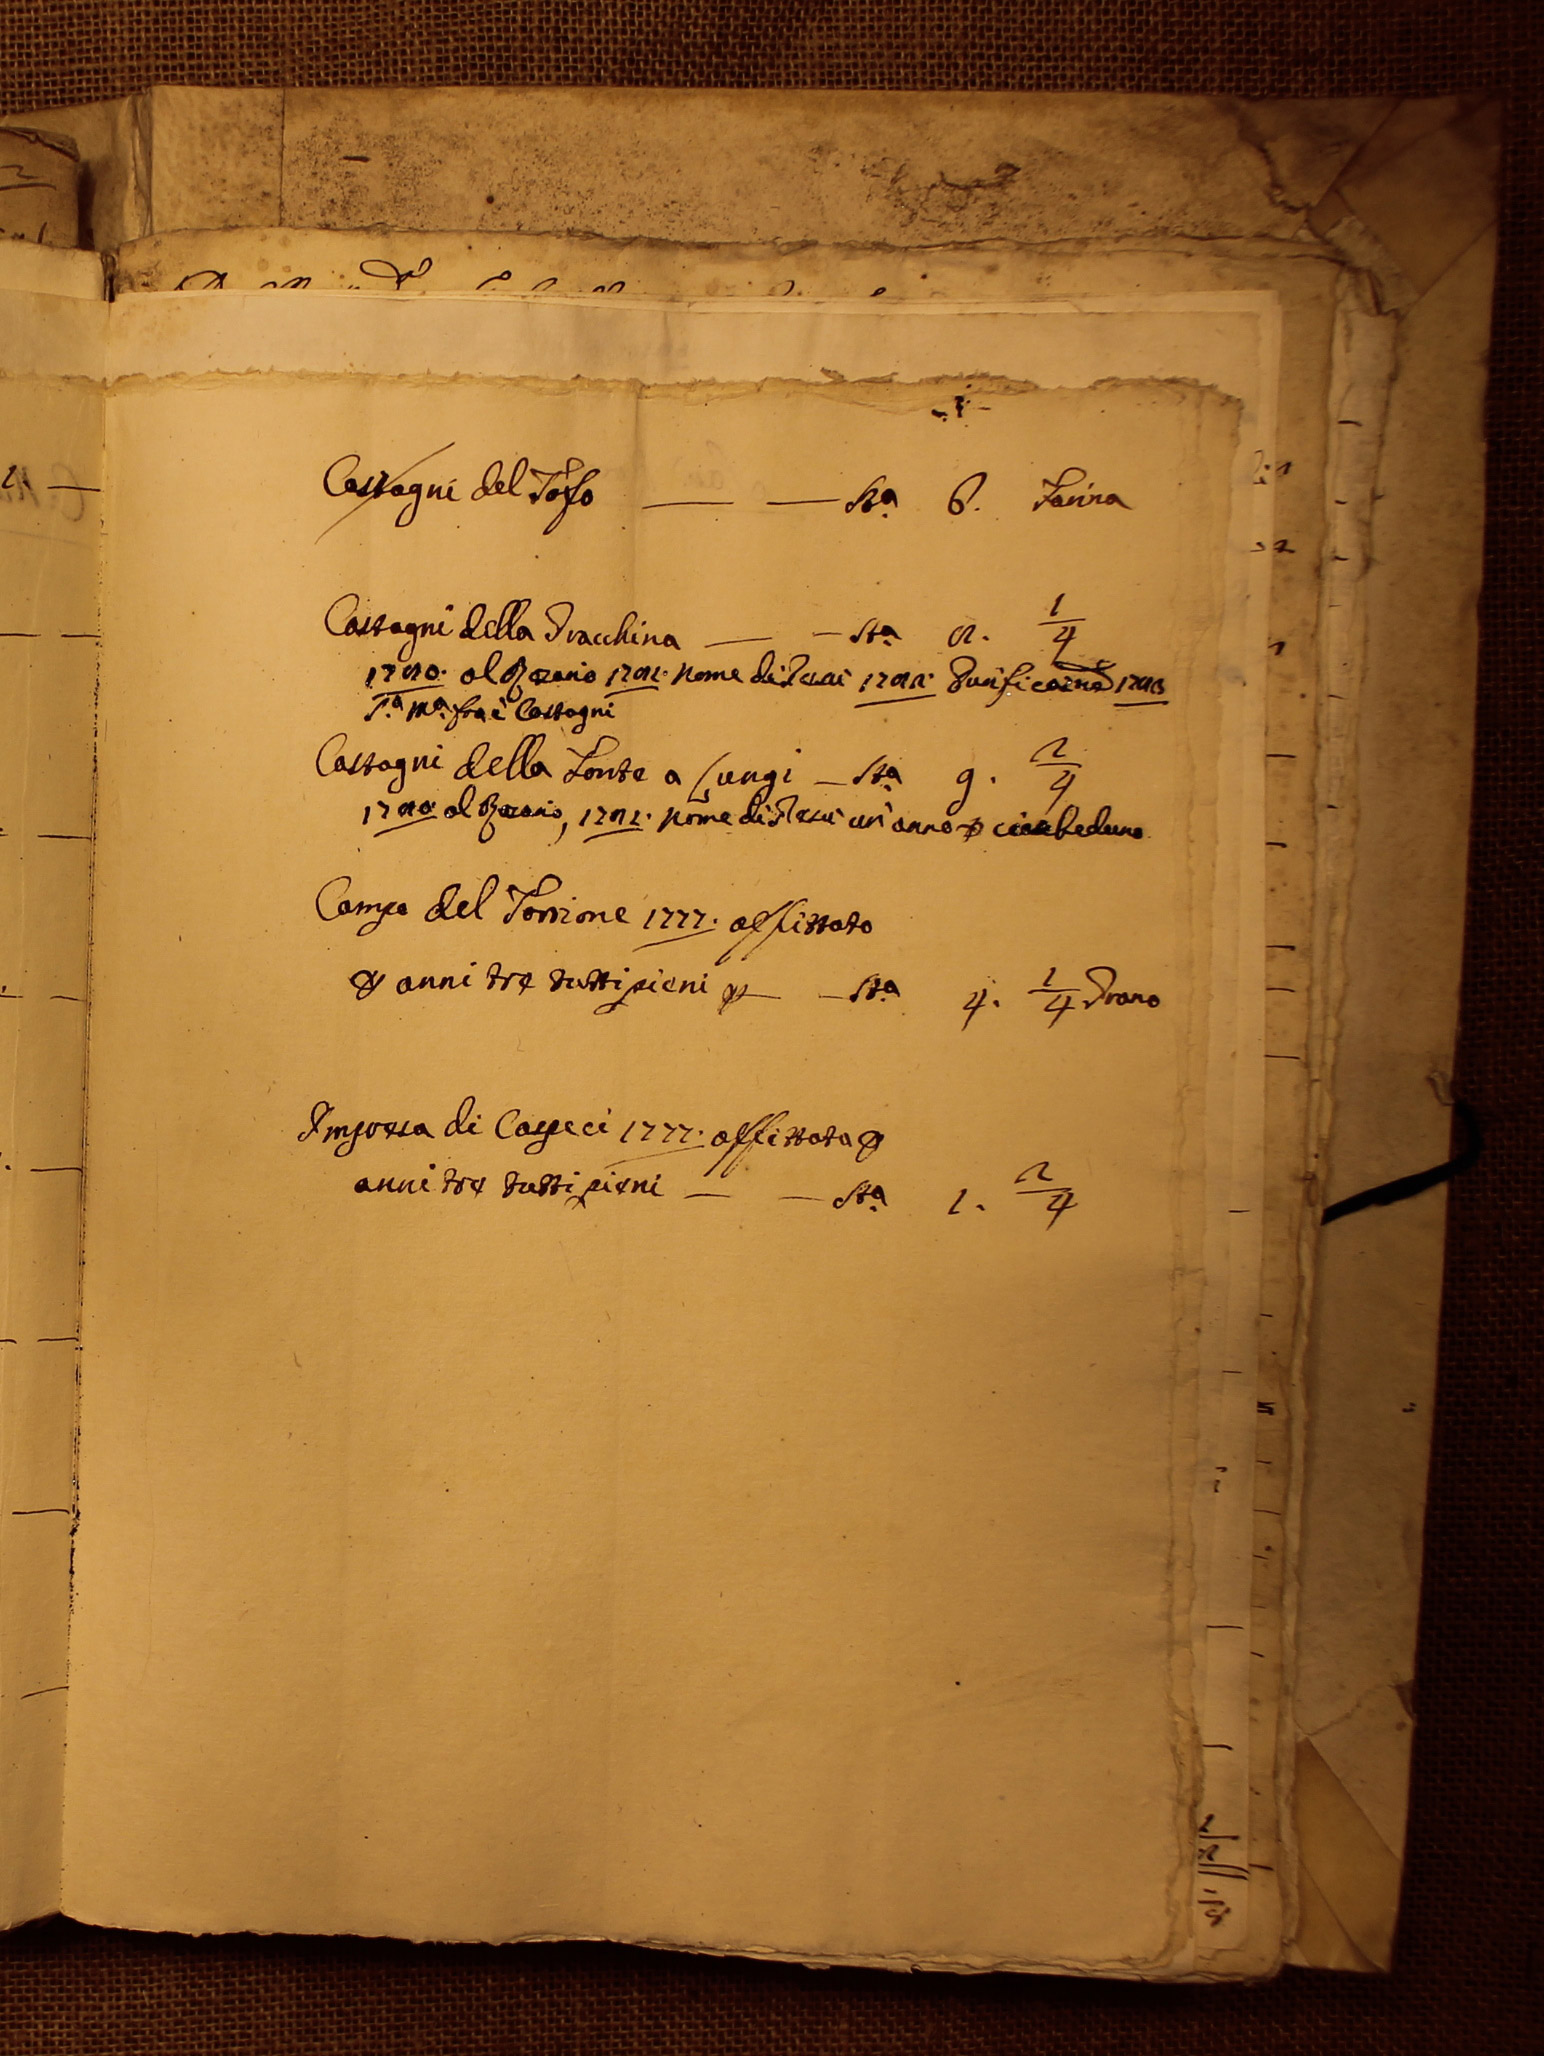 Castagni del Tofo — — Sta. 6. Farina
Castagni della Tracchina — — Sta. 8. 1/4
1780. al Rosario 1781. Nome di Gesù 1782. Purificazne 1783
Sa. Ma. fra i Castagni
Castagni della Fonte a Lungi — Sta. 9. 2/4
1780 al Rosario, 1781. Nome di Gesù un anno p ciascheduno
Campo del Torrione 1777. affittato
p anni tre tutti pieni p — — Sta. 4. 1/4 Grano
Imposta di 1777. affittata p
anni tre tutti pieni — — Sta. 1. 2/4